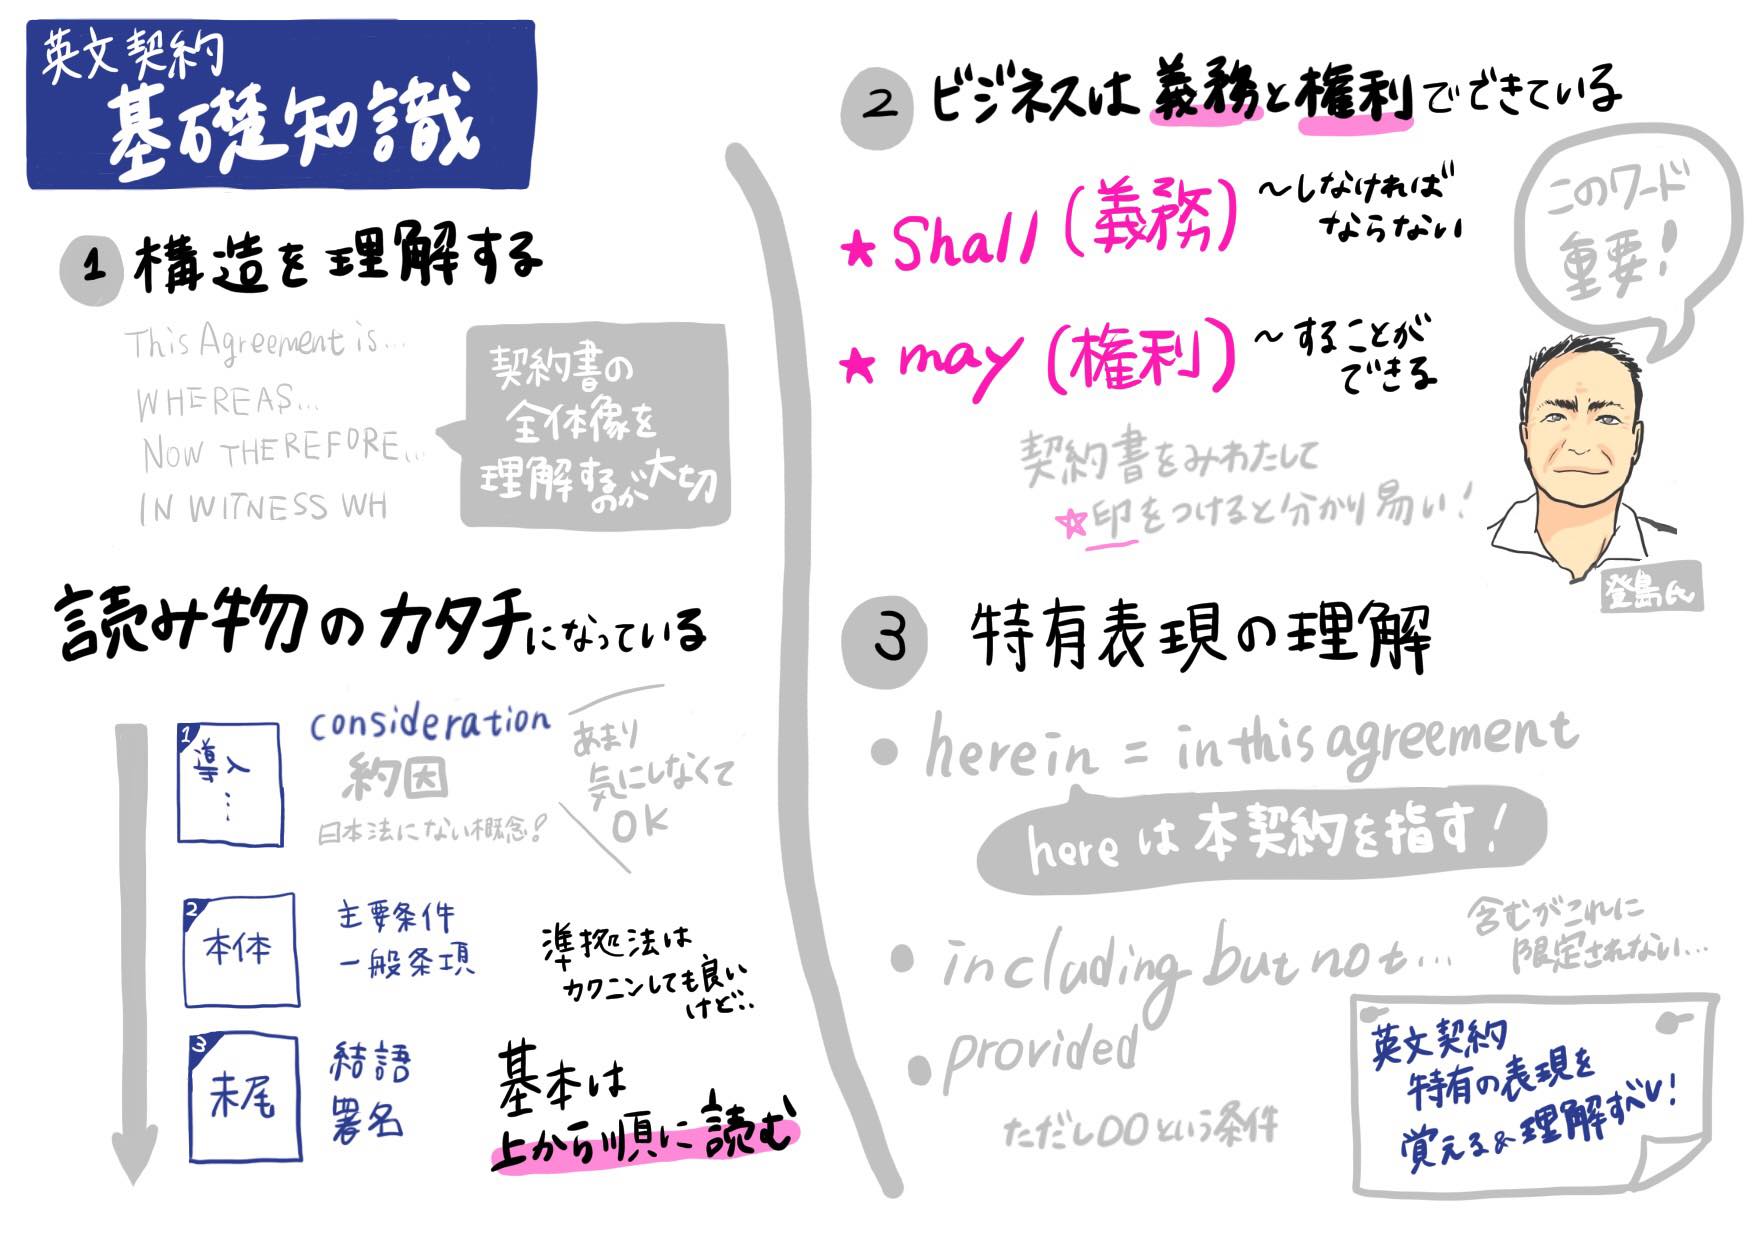 英文契約
基礎知識
1 構造を理解する
This Agreement is...
WHEREAS...
NOW THEREFORE...
IN WITNESS WH
契約書の
全体像を
理解するのが大切
読み物のカタチになっている
1
導入
...
consideration
約因
日本法にない概念!
あまり
気にしなくて
OK
2
本体
主要条件
一般条項
準拠法は
カクニンしても良い
けど...
3
末尾
結語
署名
基本は
上から順に読む
2 ビジネスは義務と権利でできている
★ Shall (義務) ～しなければ
ならない
★ may (権利) ～することが
できる
このワード
重要!
契約書をみわたして
☆印をつけると分かり易い!
登島氏
3 特有表現の理解
• herein = in this agreement
hereは本契約を指す!
• including but not...
含むがこれに
限定されない...
• provided
ただし〇〇という条件
英文契約
特有の表現を
覚える&理解すべし!